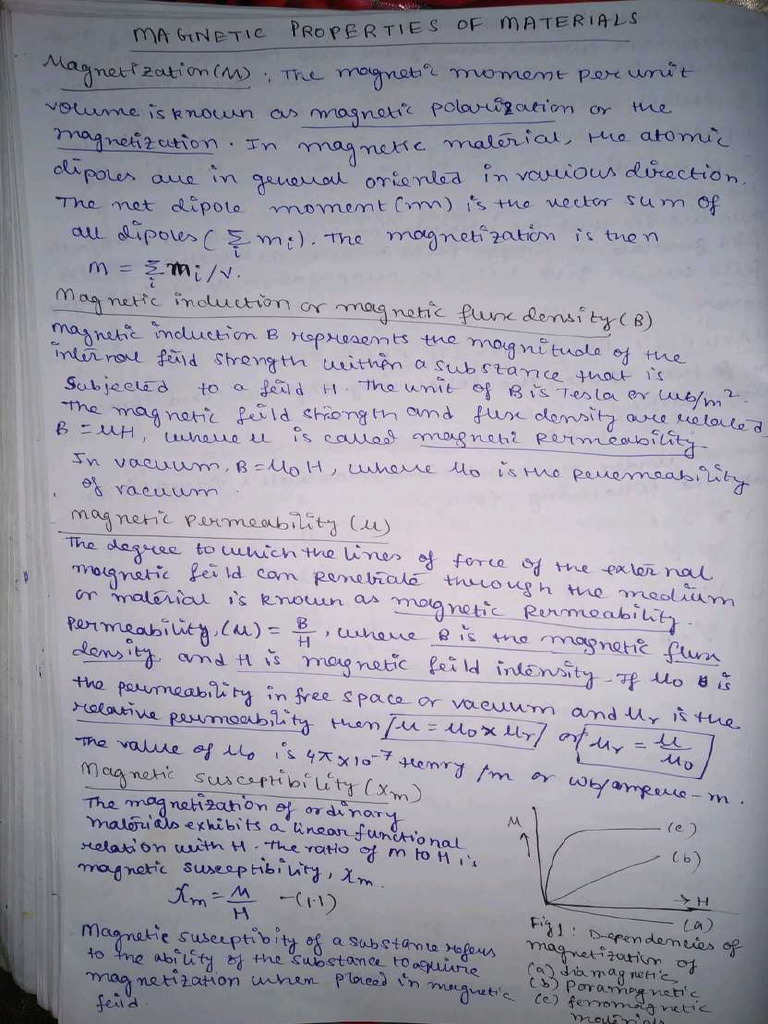 MAGNETIC PROPERTIES OF MATERIALS
Magnetization(M) : The magnetic moment per unit
volume is known as magnetic polarization or the
magnetization. In magnetic material, the atomic
dipoles are in general oriented in various direction.
The net dipole moment (m) is the vector sum of
all dipoles ( Σ_i m_i ). The magnetization is then
m = Σ_i m_i /v.
Magnetic induction or magnetic flux density (B)
Magnetic induction B represents the magnitude of the
internal feild strength within a substance that is
subjected to a feild H. The unit of B is Tesla or wb/m²
The magnetic feild strength and flux density are related
B = μH, where μ is called magnetic permeability
In vacuum, B = μ₀ H, where μ₀ is the permeability
of vacuum.
Magnetic Permeability (μ)
The degree to which the lines of force of the external
magnetic feild can penetrate through the medium
or material is known as magnetic permeability.
Permeability, (μ) = B/H, where B is the magnetic flux
density and H is magnetic feild intensity. If μ₀ is
the permeability in free space or vacuum and μᵣ is the
relative permeability then [μ = μ₀ x μᵣ] or [μᵣ = μ/μ₀]
The value of μ₀ is 4π x 10⁻⁷ Henry /m or wb/ampere-m.
Magnetic susceptibility (χm)
The magnetization of ordinary
materials exhibits a linear functional
relation with H. The ratio of m to H is
magnetic susceptibility, χm.
χm = M/H -(1.1)
Magnetic susceptibity of a substance refers
to the ability of the substance to aquire
magnetization when placed in magnetic
feild.
M ↑
(c)
(b)
→ H
(a)
Fig 1: Dependencies of
magnetization of
(a) diamagnetic,
(b) paramagnetic
(c) ferromagnetic
materials